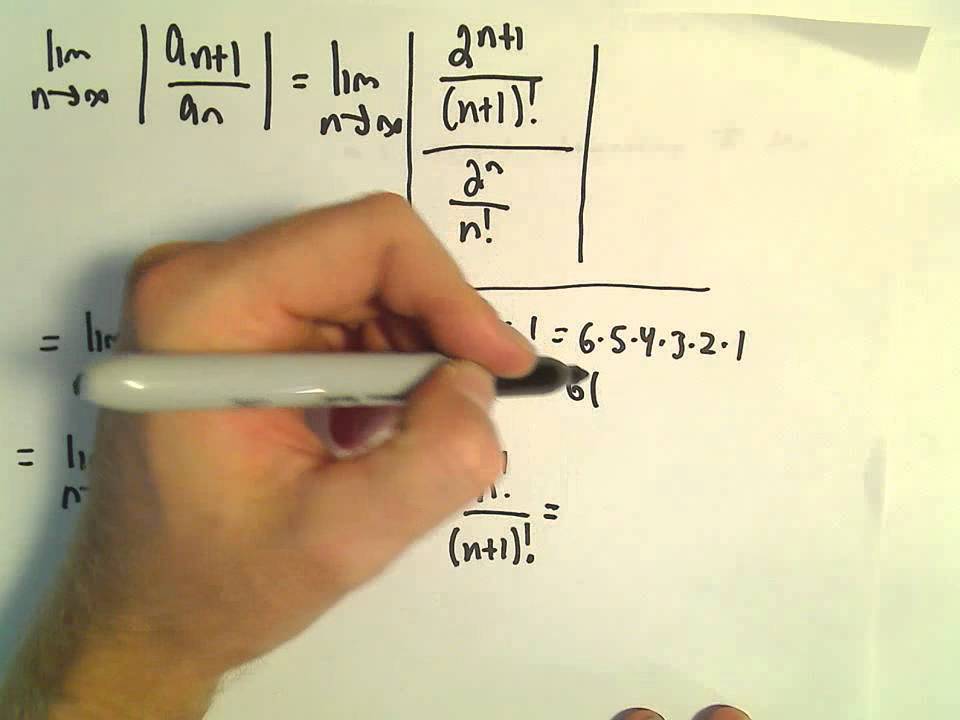 lim n→∞ | a_{n+1} / a_n | = lim n→∞ | (2^{n+1} / (n+1)!) / (2^n / n!) |
= lim ! = 6·5·4·3·2·1
6(
= n! / (n+1)! =